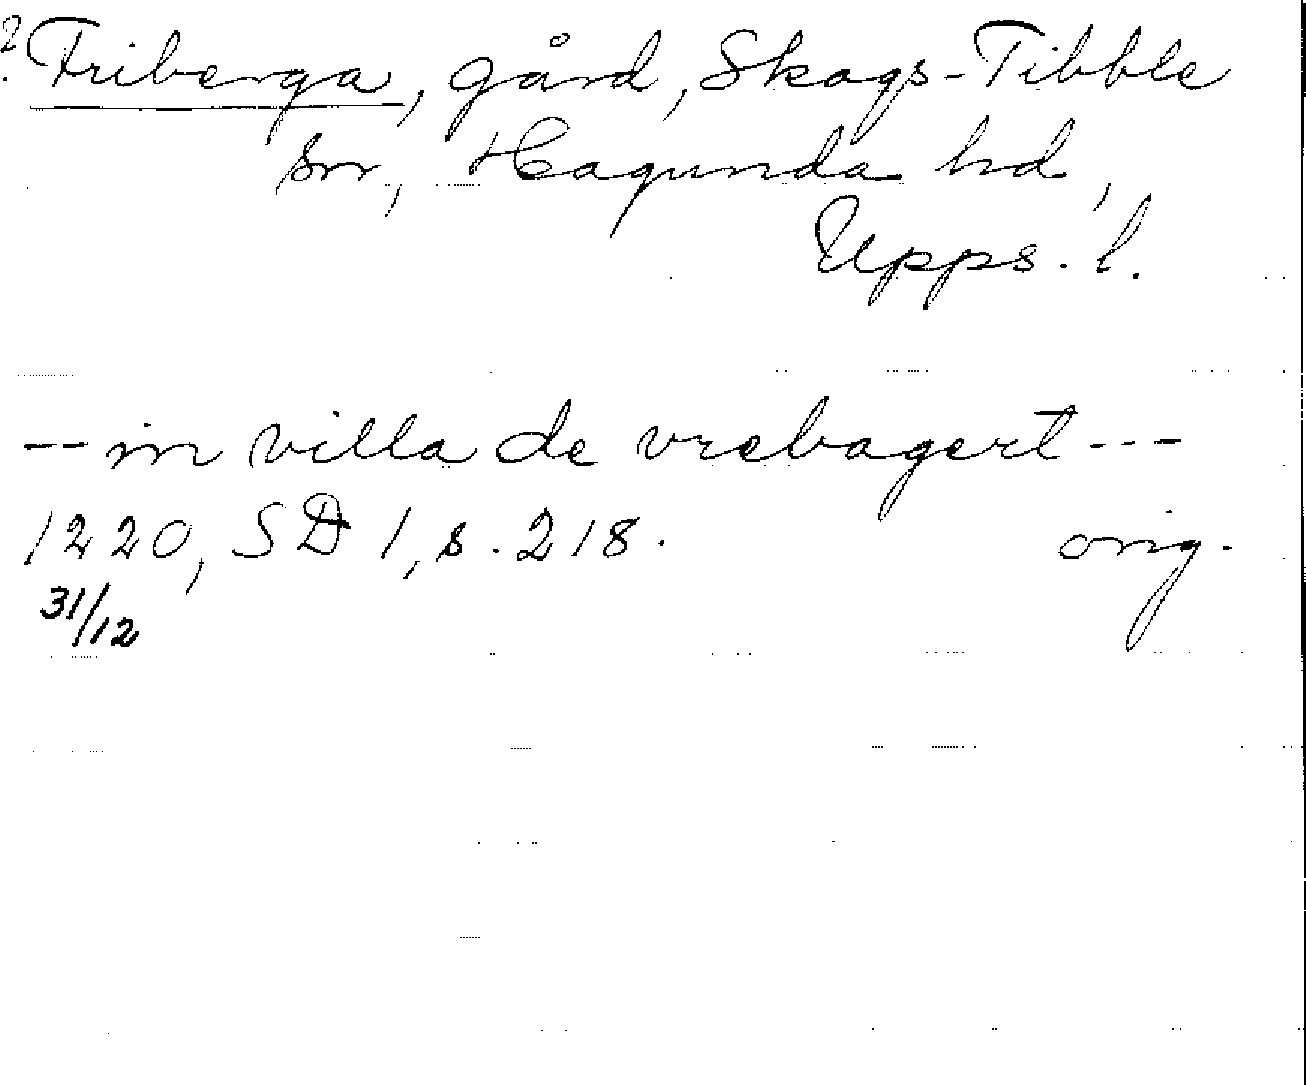 ? Friberga, gård, Skogs-Tibble
sn, Hagunda hd,
Upps. l.
-- in villa de vrebagert ---
1220, SD 1, s. 218. orig.
31/12